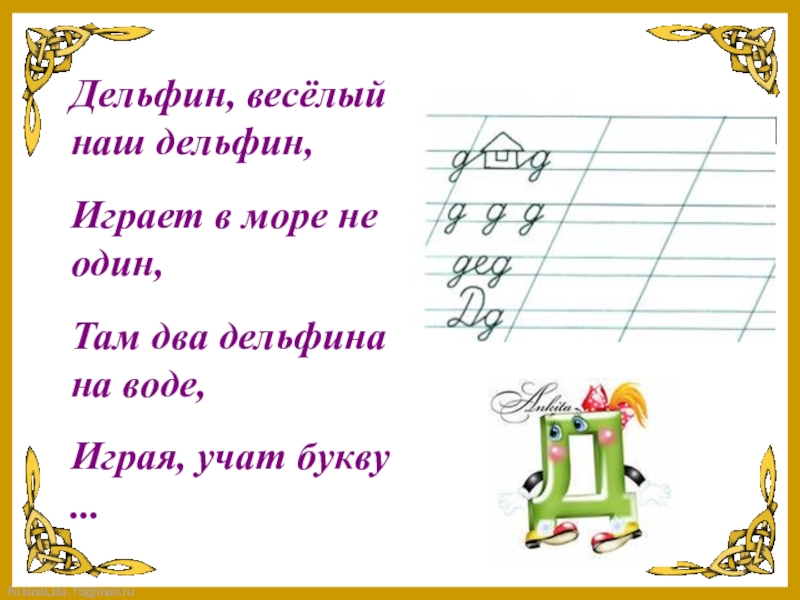 Дельфин, весёлый
наш дельфин,
Играет в море не
один,
Там два дельфина
на воде,
Играя, учат букву
...
д д
д д д
дед
Дд
Ankita
Д